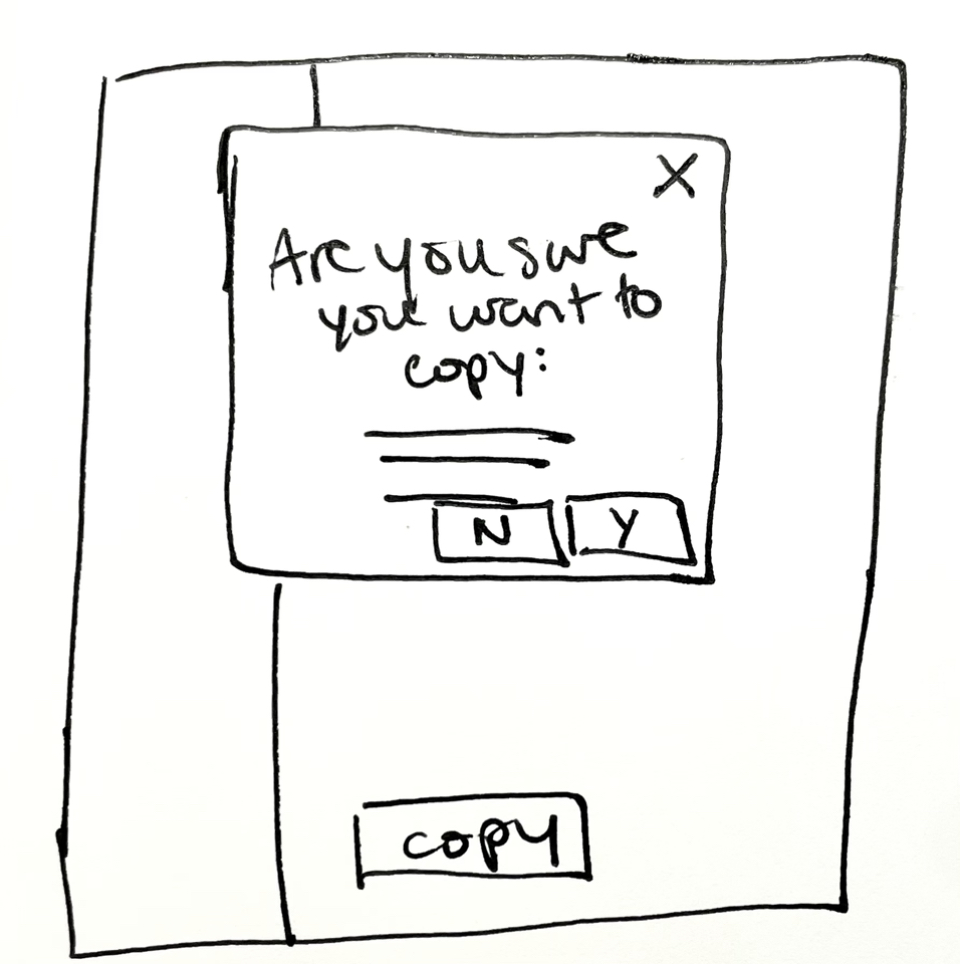 X
Are you sure
you want to
copy:
N Y
copy